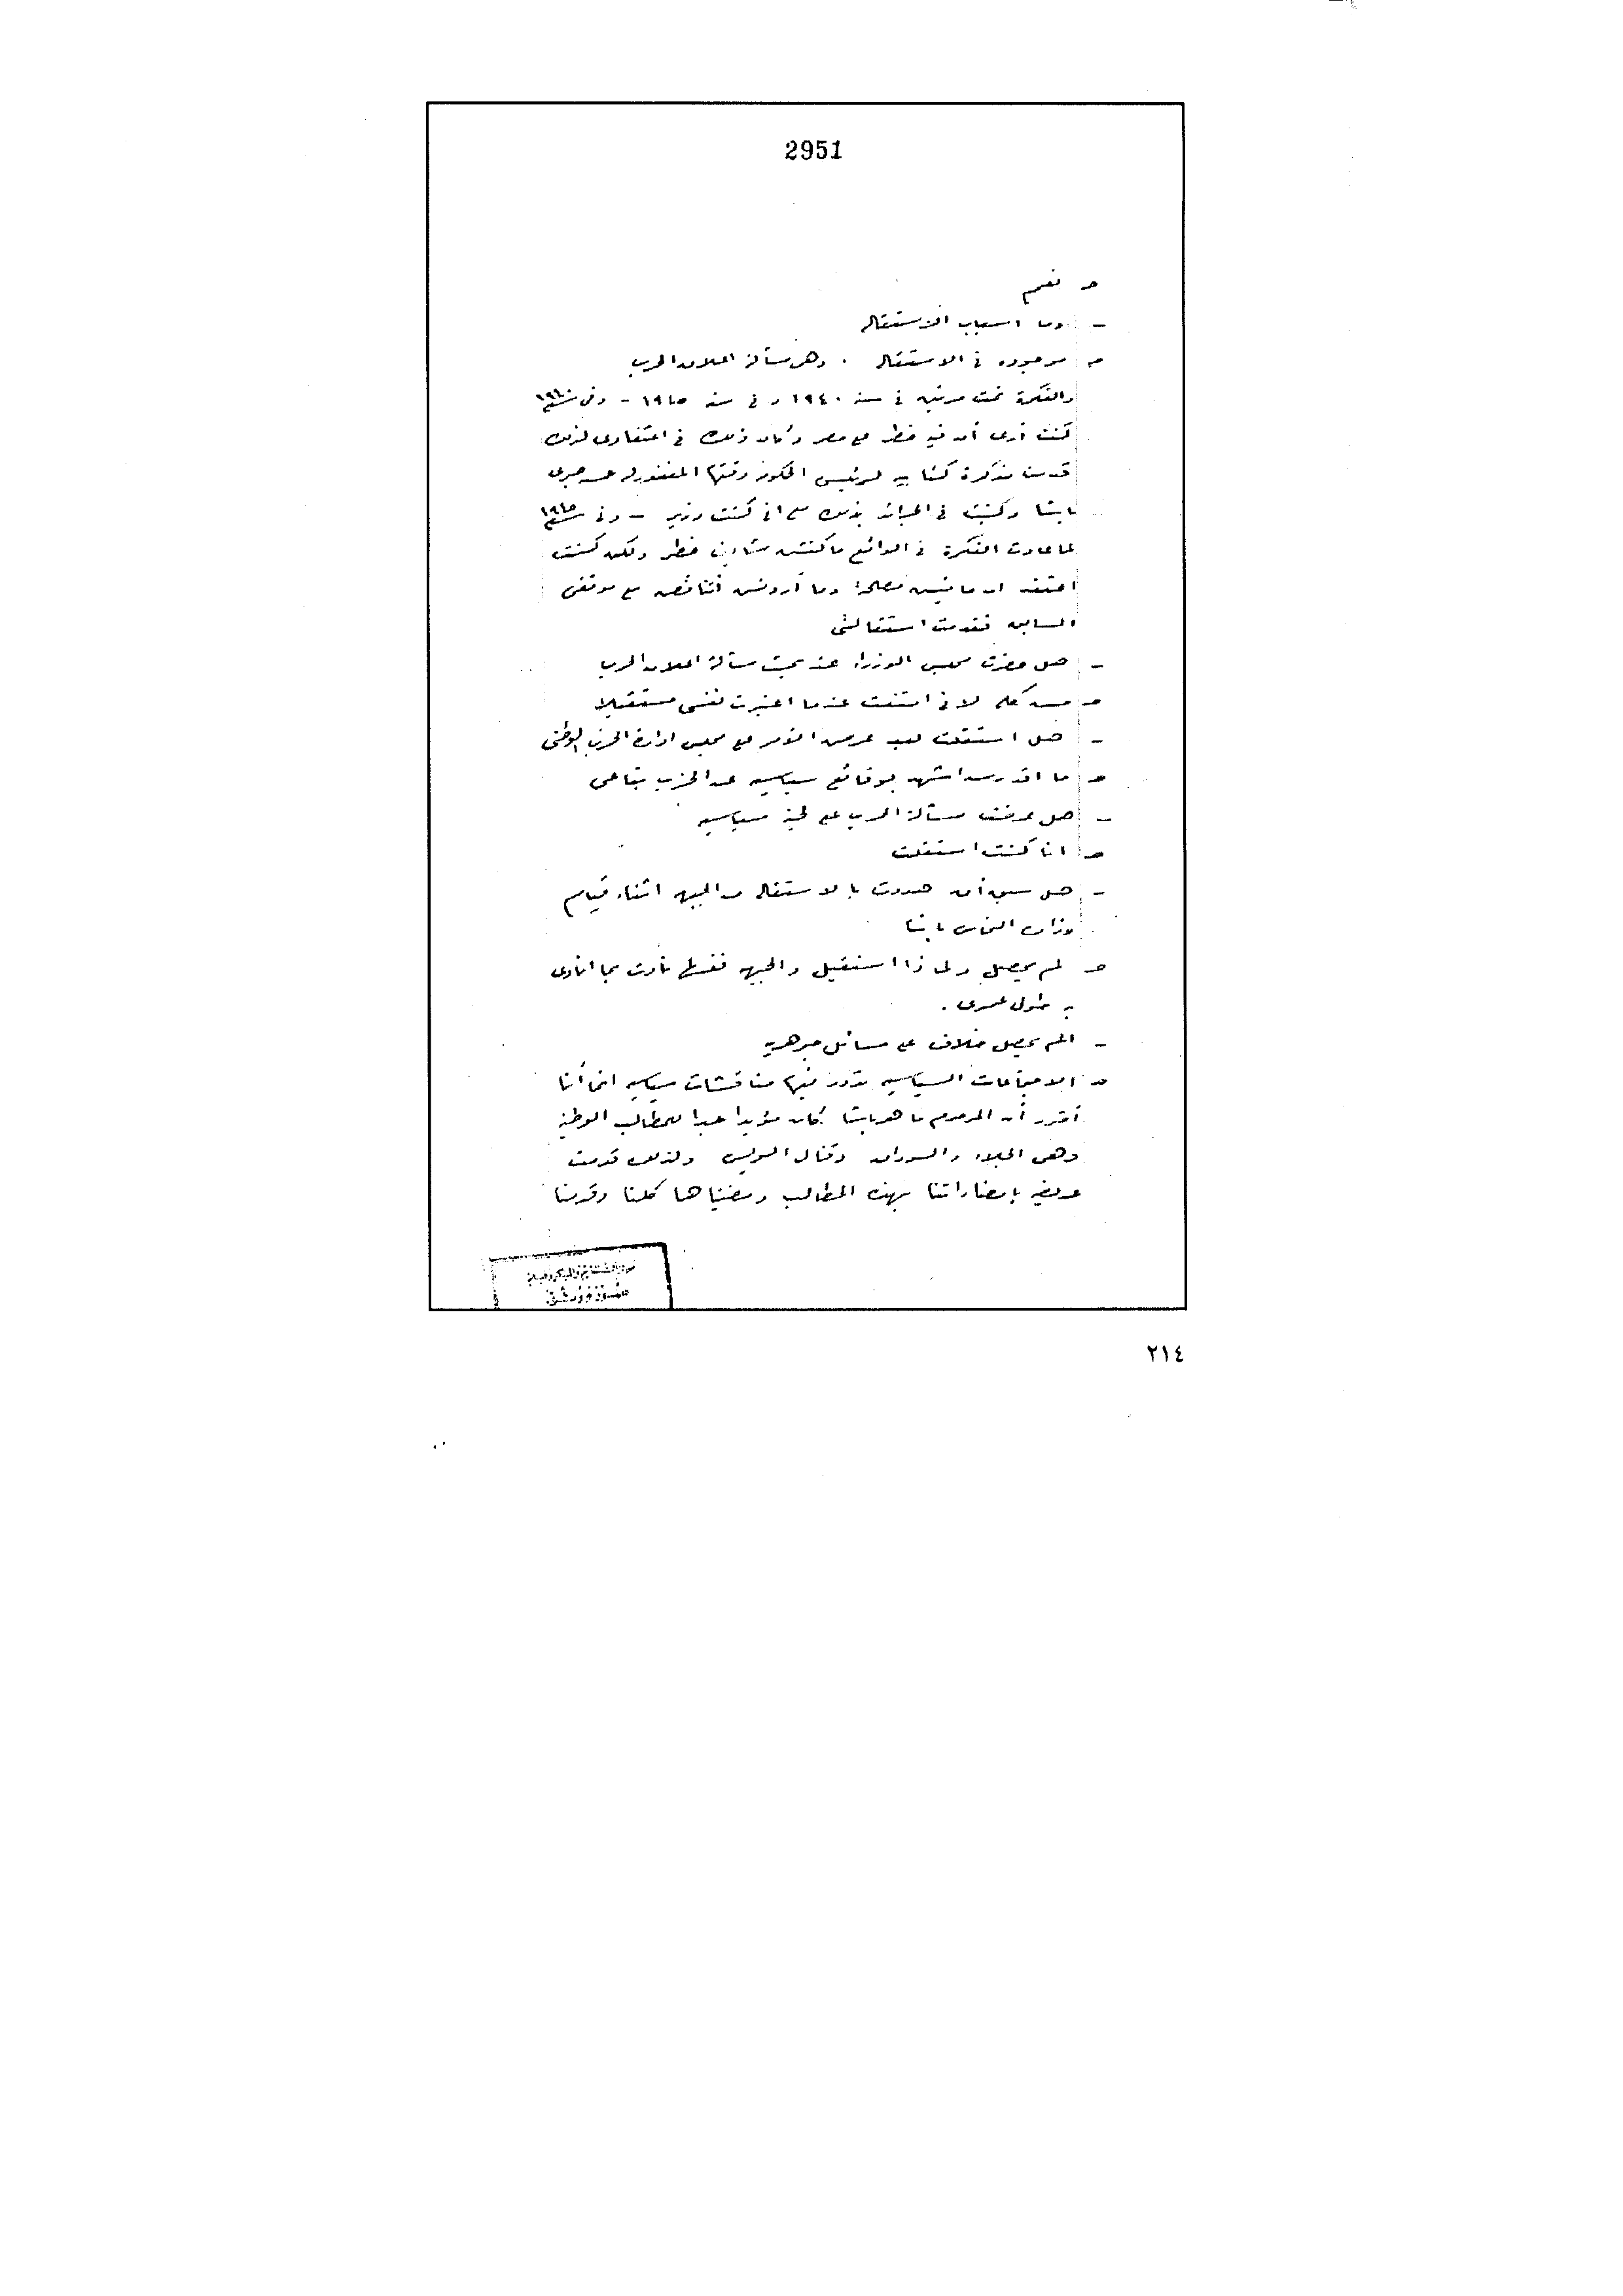 2951
ج نعم
- وما اسباب الاستقاله
ج موجوده فى الاستقاله . وهى مسألة اعلان الحرب
والفكرة تمت مرتين فى سنة ١٩٤٠ و فى سنة ١٩٤٥ - وفى سنة ١٩٤٠
كنت أرى أن فيه خطر على مصر وكان ذلك فى اعتقادى لذلك
قدمت مذكرة كتابيه لرئيس الحكومة وقتها المغفور له حسن صبرى
باشا وكتبت فى الجرائد بذلك مع انى كنت وزير - وفى سنة ١٩٤٥
لما عادت الفكرة فى الواقع ما كنتش شايف خطر ولكن كنت
اعتقد ان مافيش مصلحة وما أردتش أتناقض مع موقفى
السابق فقدمت استقالتى
- هل حضرت مجلس الوزراء عند بحث مسألة اعلان الحرب
ج لانى امتنعت عندما اعتبرت نفسى مستقيلا
- هل استقلت بعد عرض الأمر على مجلس ادارة الحزب الوطنى
ج ما اقدرش اشهد بوقائع سياسيه عن الحزب بتاعى
- هل عرضت مسألة الحرب على لجنة سياسيه
ج انا كنت استقلت
- هل سبق أن هددت بالاستقاله من الجبهه اثناء قيام
وزارة النحاس باشا
ج لم يحصل ولماذا استقيل والجبهه نفسها نادت بما انادى
به طول عمرى .
- الم يحصل خلاف على مسائل جوهريه
ج الاجتماعات السياسيه تدور فيها مناقشات سياسيه انما أنا
أقرر أن المرحوم ماهر باشا كان مؤيدا جدا للمطالب الوطنية
وهى الجلاء والسودان وقنال السويس ولذلك قدمت
عريضه بامضاءاتنا بهذه المطالب ومضيناها كلنا وقدمنا
٢١٤